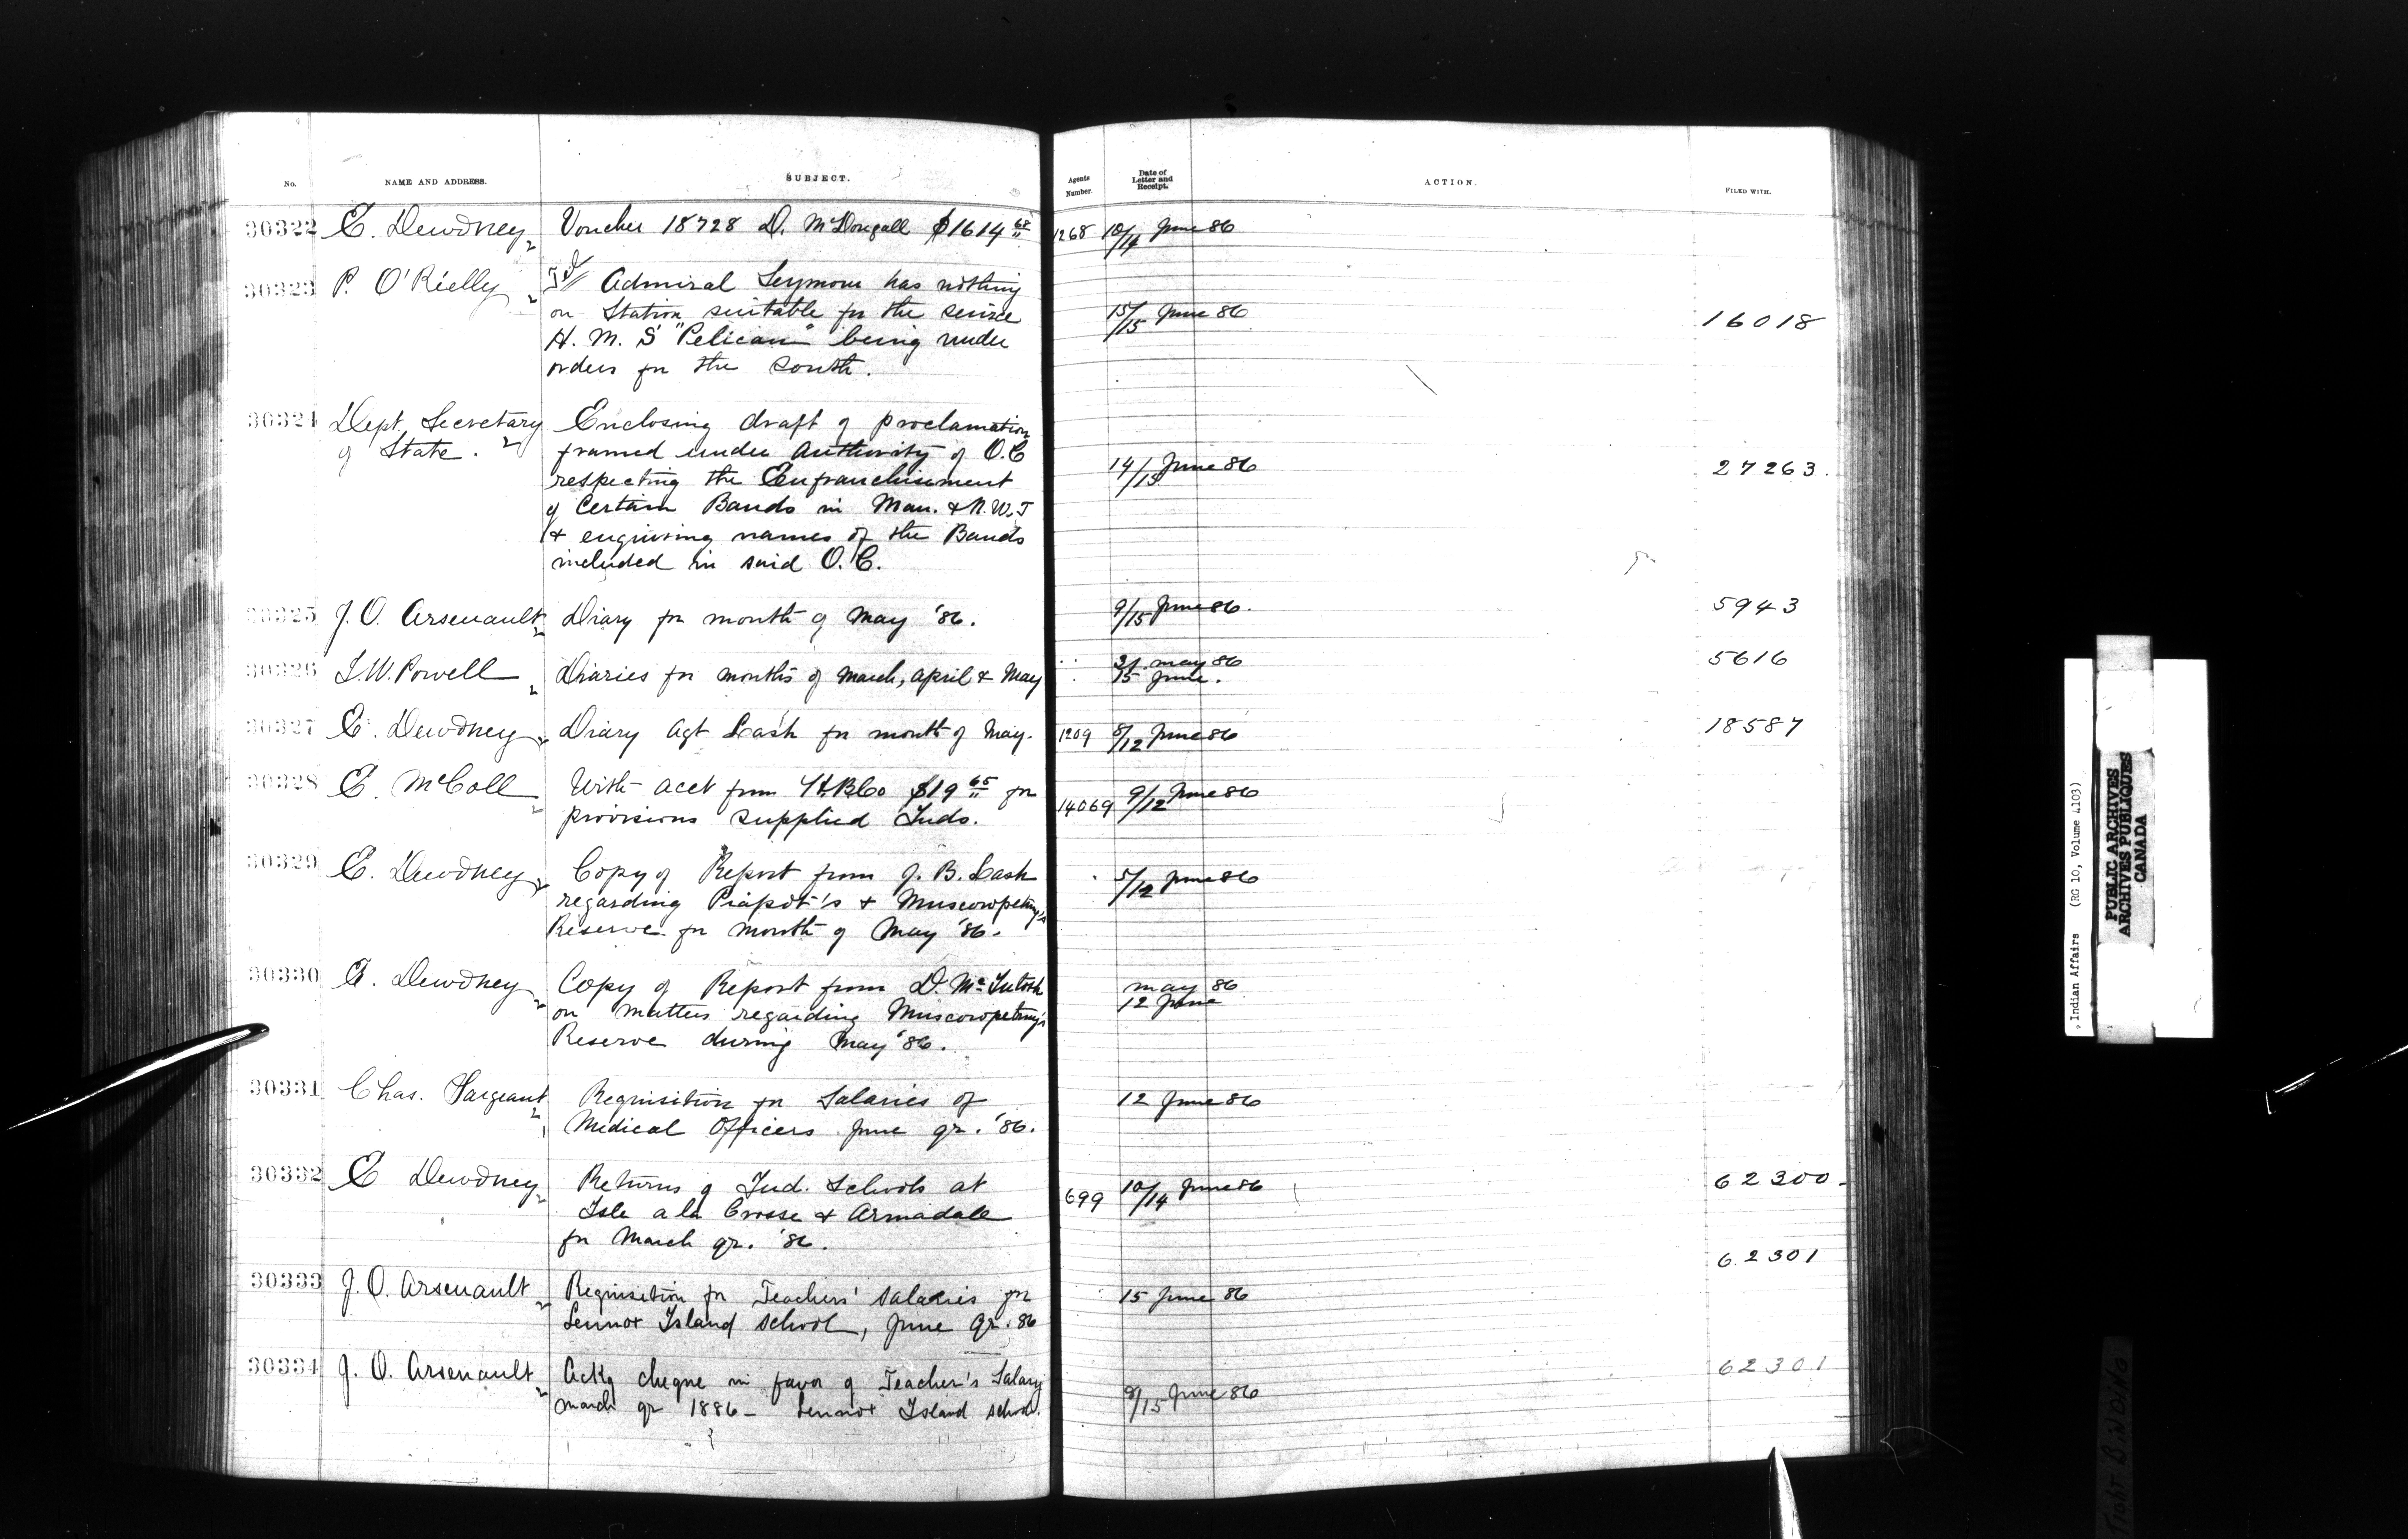 No. NAME AND ADDRESS. SUBJECT. Agents Number. Date of Letter and Receipt. ACTION. FILED WITH.
30322 E. Dewdney Voucher 18728 D. McDougall $1614 68 1268 10/14 June 86
30323 P. O'Rielly Admiral Seymour has nothing
on Station suitable for the service 15/15 June 86 16018
H. M. S "Pelican" being under
orders for the South.
30324 Dept. Secretary Enclosing draft of proclamation
of State. framed under Authority of O.C 14/15 June 86 27263.
respecting the Enfranchisement
of Certain Bands in Man. & N.W.T
& enquiring names of the Bands
included in said O.C.
30325 J.O. Arsenault Diary for month of May '86. 9/15 June 86. 5943
30326 I.W. Powell Diaries for months of March, April & May 31 May 86 5616
15 June.
30327 E. Dewdney Diary Agt Lash for month of May. 1209 8/12 June 86 18587
30328 E. McColl With acct from H.B.Co $19 65 for 14069 9/12 June 86
provisions supplied Inds.
30329 E. Dewdney Copy of Report from J. B. Lash 5/12 June 86
regarding Piapot's & Muscowpetung's
Reserve for month of May '86.
30330 E. Dewdney Copy of Report from D. McIntosh May 86
on matters regarding Muscowpetung's 12 June
Reserve during May '86.
30331 Chas. Sargeant Requisition for Salaries of 12 June 86
Medical Officers June qr. '86.
30332 E Dewdney Returns of Ind. Schools at 699 10/14 June 86 62300.
Isle a la Crosse & Armadale
for March qr. '86. 62301
30333 J.O. Arsenault Requisition for Teachers' Salaries for 15 June 86
Lennox Island School, June Qr. 86
30334 J. O. Arsenault Ackg cheque in favor of Teacher's Salary 62301
March qr 1886 - Lennox Island School. 9/15 June 86
Indian Affairs (RG 10, Volume 4103)
PUBLIC ARCHIVES
ARCHIVES PUBLIQUES
CANADA
TIGHT BINDING